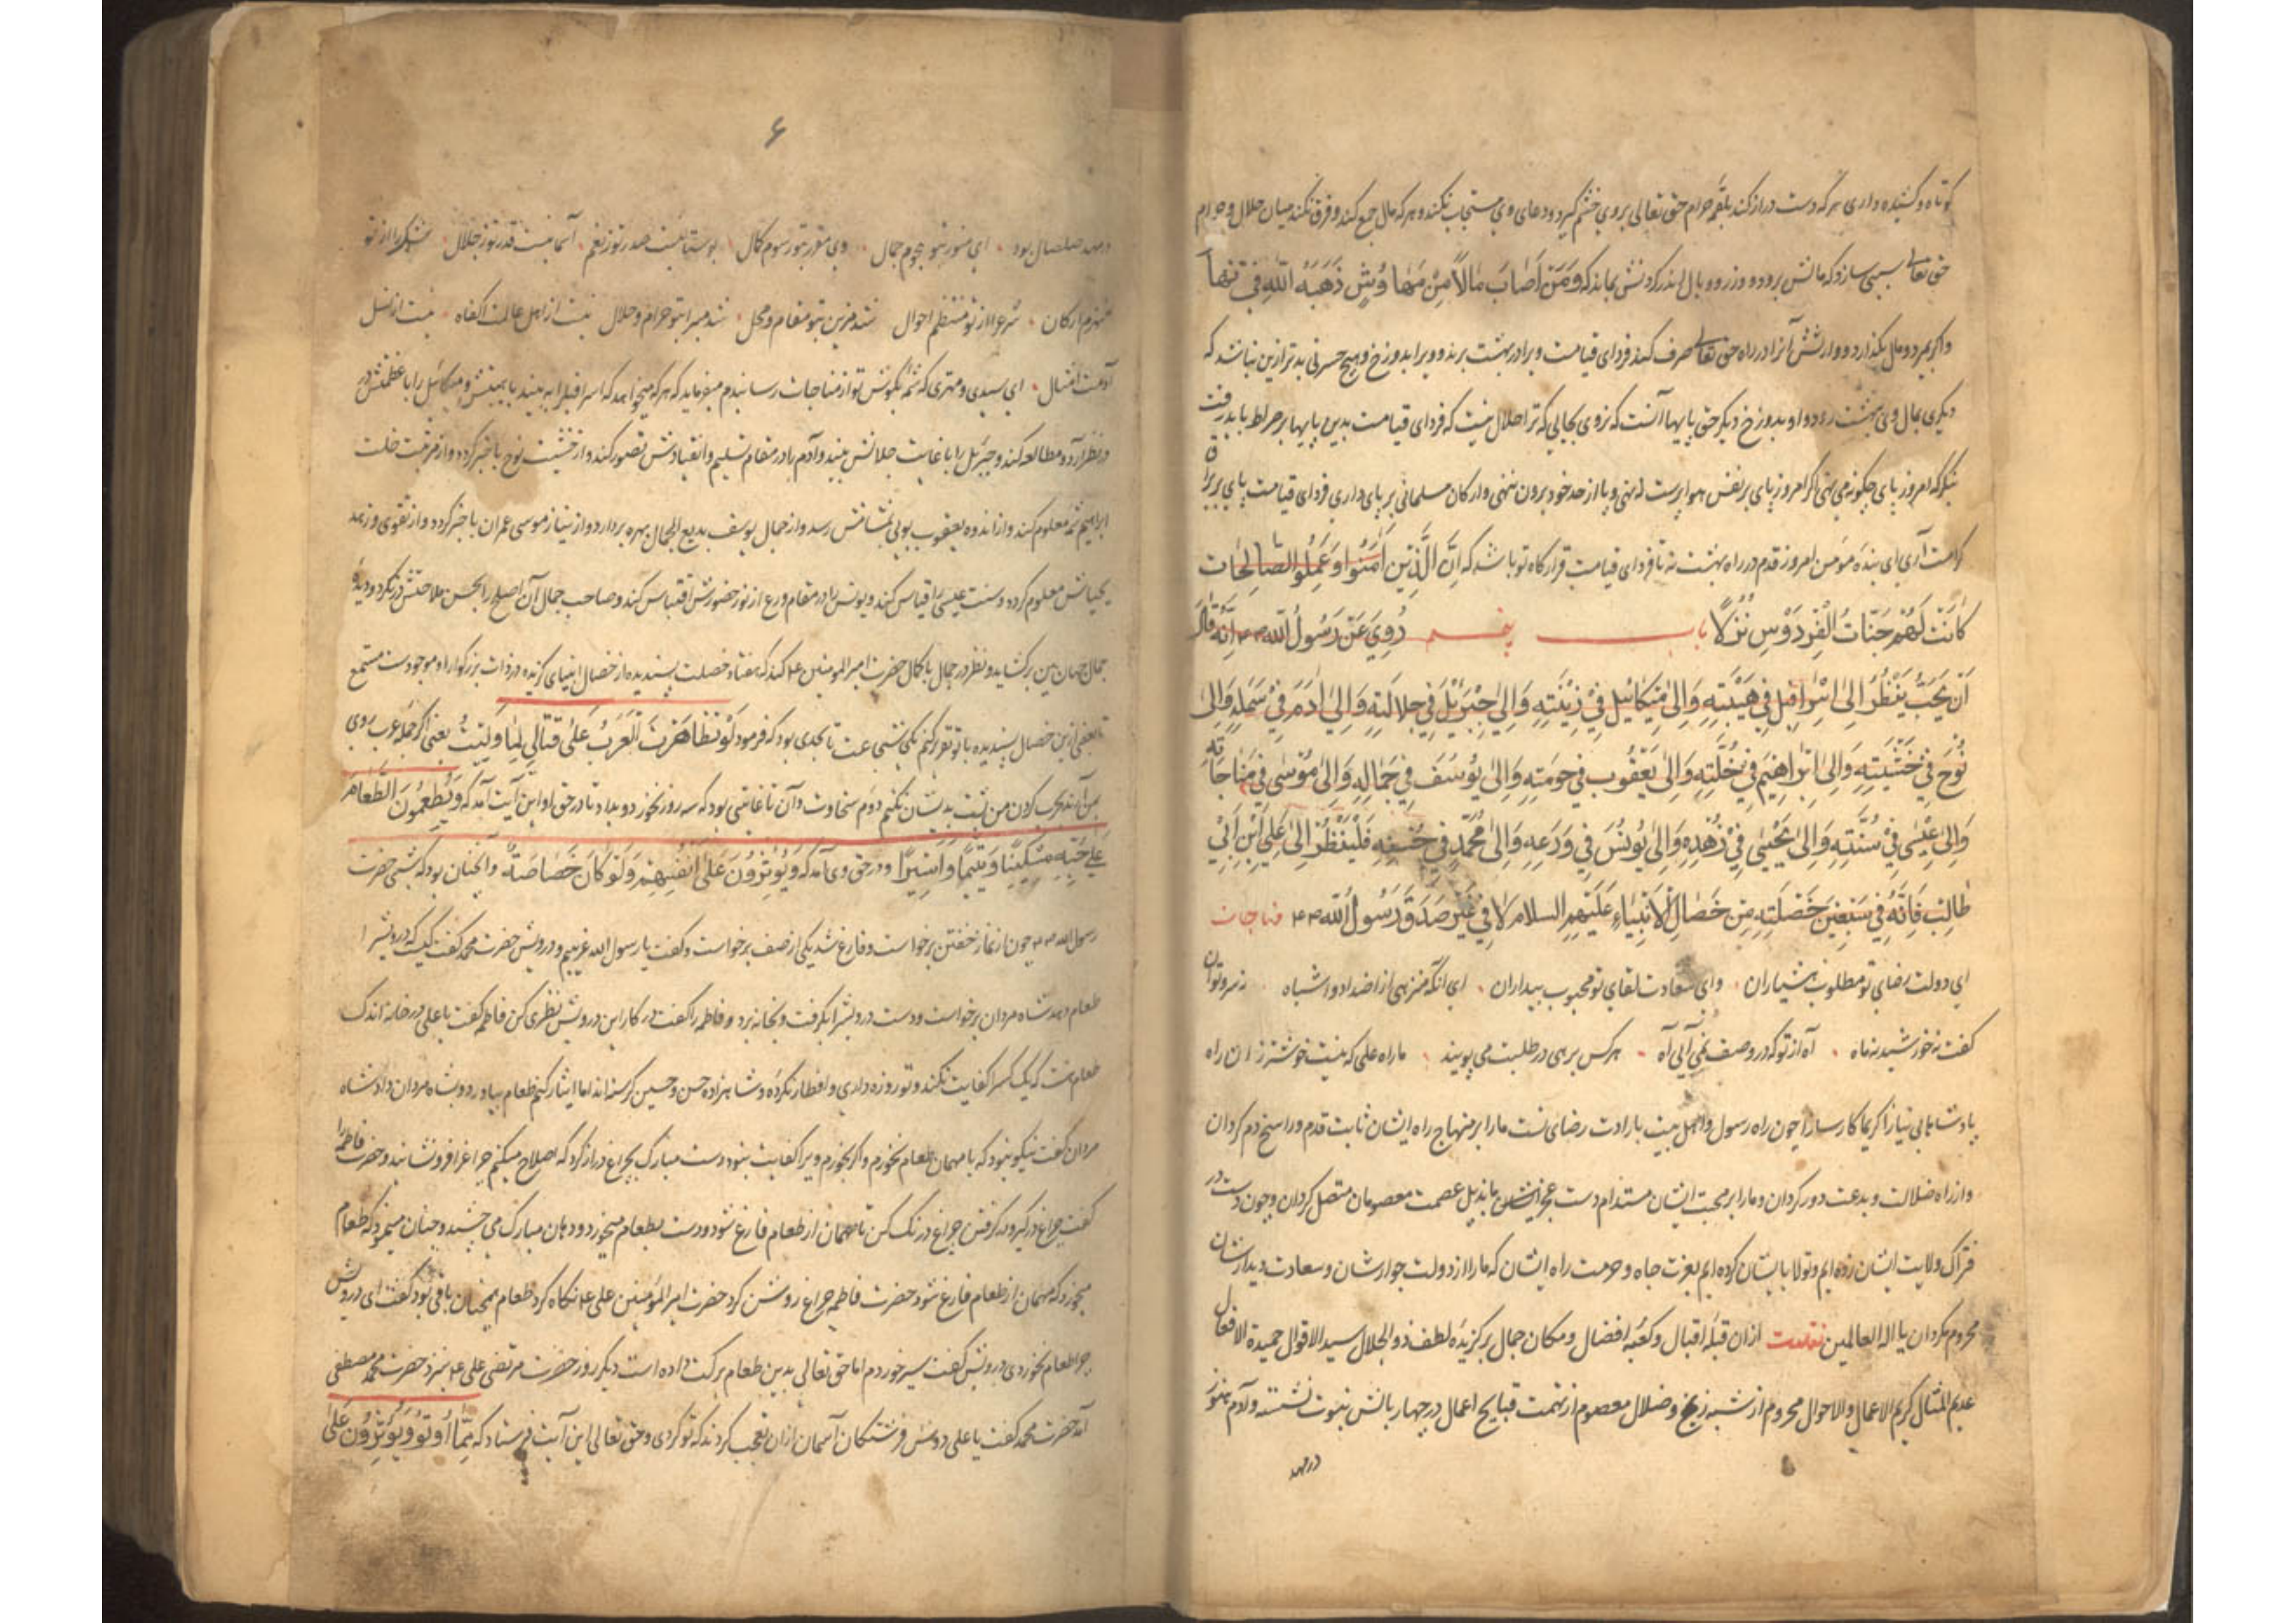 کوتاه و کشیده داری هر که دست دراز کند بلقمه حرام حق تعالی بروی خشم گیرد و دعای وی مستجاب نکند و هر که مال جمع کند و فرق نکند میان حلال و حرام
حق تعالی سببی سازد که مالش برود و وزر و وبال اندر گردنش بماند که وَمَنْ اَصَابَ مَالاً مِنْ ذَهَبَهُ اللّٰهُ فِی
واگر بمیرد و مال بگذارد و وارثش آنرا در راه حق تعالی صرف کند فردای قیامت ویرا در بهشت برند و ویرا بدوزخ و هیچ حسرتی بدتر ازین نباشد که
دیگری بمال وی ببهشت رود و او بدوزخ دیگر حق پایها آنست که نروی بجایی که ترا حلال نیست که فردای قیامت بدین پایها بر صراط باید رفت
بنگر که امروز پای چگونه می نهی اگر امروز پای بر نفس هوا پرست نهی و پا از حد خود برون ننهی و ارکان مسلمانی بر پای داری فردای قیامت پای بر براق
کرامت آری ای بنده مؤمن امروز قدم در راه بهشت نه تا فردای قیامت قرارگاه تو باشد که اِنَّ الَّذِیْنَ اٰمَنُوْا وَعَمِلُوا الصَّالِحَات
کَانَتْ لَهُمْ جَنَّاتُ الْفِرْدَوْسِ نُزُلًا باب پنجم رُوِیَ عَنْ رَسُوْلُ اللّٰه اَنَّهُ قَالَ
اَنْ یَحِبُّ یَنْظُرَ اِلیٰ اِسْرَافِیْلَ فِی هَیْبَتِهِ وَاِلیٰ مِیْکَائِیْلَ فِیْ زِیْنَتِهِ وَاِلیٰ جِبْرَئِیْلَ فِی جَلَالَتِهِ وَاِلیٰ اٰدَمَ فِیْ وَاِلیٰ
نُوْحَ فِیْ خَشْیَتِهِ وَاِلیٰ اِبْرَاهِیْمَ فِیْ خُلَّتِهِ وَاِلیٰ یَعْقُوْبَ فِی وَاِلیٰ یُوْسُفَ فِی جَمَالِهِ وَاِلیٰ مُوْسٰی فِی مُنَاجَاتِهِ
وَاِلیٰ عِیْسٰی فِیْ سُنَّتِهِ وَاِلیٰ یَحْیٰی فِیْ زُهْدِهِ وَاِلیٰ یُوْنُسَ فِی وَرَعِهِ وَاِلیٰ مُحَمَّدٍ فِی فَلْیَنْظُرْ اِلیٰ عَلِیِّ ابْنِ اَبِیْ
طَالِبٍ فَاِنَّهُ فِیْ سَبْعِیْنَ خَصْلَتِهِ مِن خِصَالِ الْاَنْبِیَاءِ عَلَیْهِمِ السلام لَا فِی غَیْر صَدَقَ رَسُوْلُ اللّٰه مناجات
ای دولت رضای تو مطلوب هشیاران وای سعادت لقای تو محبوب بیداران ای آنکه منزهی از اضداد و اشباه نه سرو توان
گفت نه خورشید نه ماه آه از تو که در وصف نمی آیی آه هر کس برهی در طلبت می پویند ما راه علی که نیست خوشتر زان راه
پادشاها بی نیازا کریما کارسازا چون راه رسول و اهل بیت با ارادت رضای تست ما را بر منهاج راه ایشان ثابت قدم و راسخ دم گردان
و از راه ضلالت و بدعت دور گردان و ما را بر محبت ایشان مستدام دست بذیل عصمت معصومان متصل گردان و چون دست در
فتراک ولایت ایشان زده ایم و تولا بایشان کرده ایم بعزت جاه و حرمت راه ایشان که ما را از دولت جوارشان و سعادت دیدارشان
محروم مگردان یا اله العالمین نقلست ازان قبله اقبال و کعبه افضال و مکان جمال برگزیده لطف ذو الجلال سید الاقوال حمیدة الافعال
عدیم المثال کریم الاعمال والاحوال محروم از شبه زیغ و ضلال معصوم از تهمت قبایح اعمال در چهار بالش نبوت نشسته و آدم هنوز
در مهد
۶
در مهد صلصال بود ای منور بتو نجوم جمال وی مقرر بتو رسوم کمال بوستانیست صدر تو ز نعم آسمانیست قدر تو ز جلال از تو
منهزم ارکان شرع را از تو منتظم احوال شد مزین بتو مقام و محل شد مبرا بتو حرام و حلال نیست از اهل عالمت اکفاء نیست از نسل
آدمت امثال ای سیدی و مهتری که بگوش تو از مناجات رسانیدم میفرماید که هر که میخواهد که اسرافیل را به بیند با هیبتش و میکائیل را با عظمتش در
در نظر آرد و مطالعه کند و جبرئیل را با غایت جلالتش بیند و آدم را در مقام تسلیم و انقیادش تصور کند و از خشیت نوح با خبر گردد و از مرتبت خلت
ابراهیم معلوم کند و از اندوه یعقوب بویی بمشامش رسد و از جمال یوسف بدیع الجمال بهره بردارد و از نیاز موسی عمران با خبر گردد و از تقوی و زهد
یحیاش معلوم کرده و سنت عیسی را قیاس کند و یونس را در مقام ورع از نور حضورش اقتباس کند و صاحب جمال را بحسن ملاحتش درنگرد و دیده
جمال جهان بین برگشاید و نظر در جمال با کمال حضرت امیر المومنین کند که هفتاد خصلت پسندیده از خصال انبیای گزیده در ذات بزرگوار او موجودست مستمع
تا بعضی ازین خصال پسندیده با تو تقریر کنم یکی شجاعت تا بحدی بود که فرمود لَوْ تَظَاهَرَتْ الْعَرَبُ عَلٰی قِتَالِی لَمَا وَلَّیْتُ یعنی اگر جمله عرب روی
بمن آرند بحرب کردن من پشت بدیشان نکنم دوم سخاوت و آن تا غایتی بود که سه روز نخورد و بداد تا در حق او این آیت آمد که وَیُطْعِمُوْنَ الطَّعَامَ
عَلٰی حُبِّهِ مِسْکِیْنًا وَیَتِیْمًا وَاَسِیْرًا و در حق وی آمد که وَیُؤْثِرُوْنَ عَلیٰ اَنْفُسِهِمْ وَلَوْ کَانَ خَصَاصَةٌ و آنچنان بود که شبی حضرت
رسول الله چون از نماز خفتن برخواست و فارغ شد یکی از صف برخواست و گفت یا رسول الله غریبم و درویش حضرت محمد گفت کیست که درویش را
طعام دهد شاه مردان برخواست و دست درویش را بگرفت و بخانه برد و فاطمه را گفت در کار این درویش نظری کن فاطمه گفت یا علی در خانه اندک
طعام هست که یک کس را کفایت نکند و تو روزه داری و افطار نکرده و شاهزاده حسن و حسین گرسنه اند اما ایثار کنیم طعام بیاورد و بشاه مردان داد شاه
مردان گفت نیکو نبود که با مهمان طعام نخورم و اگر بخورم ویرا کفایت نبود دست مبارک بچراغ دراز کرد که اصلاح میکنم چراغ را فرو نشانید و حضرت فاطمه را
گفت چراغ درگیر و در گرفتن چراغ درنگ کن تا مهمان از طعام فارغ شود و دست بطعام میخورد و دهان مبارک می چنبید و چنان مینمود که طعام
میخورد که مهمان از طعام فارغ شود حضرت فاطمه چراغ روشن کرد حضرت امیر المؤمنین علی نگاه کرد طعام همچنان باقی بود گفت ای درویش
چرا طعام نخوردی درویش گفت سیر خوردم اما حق تعالی بدین طعام برکت داده است دیگر روز حضرت مرتضی علی بنزد حضرت محمد مصطفی
آمد حضرت محمد گفت یا علی دوش فرشتگان آسمان ازان تعجب کردند که تو کردی و حق تعالی این آیت فرستاد که مِمَّا اُوْتُوْ وَیُؤْثِرُوْنَ عَلیٰ